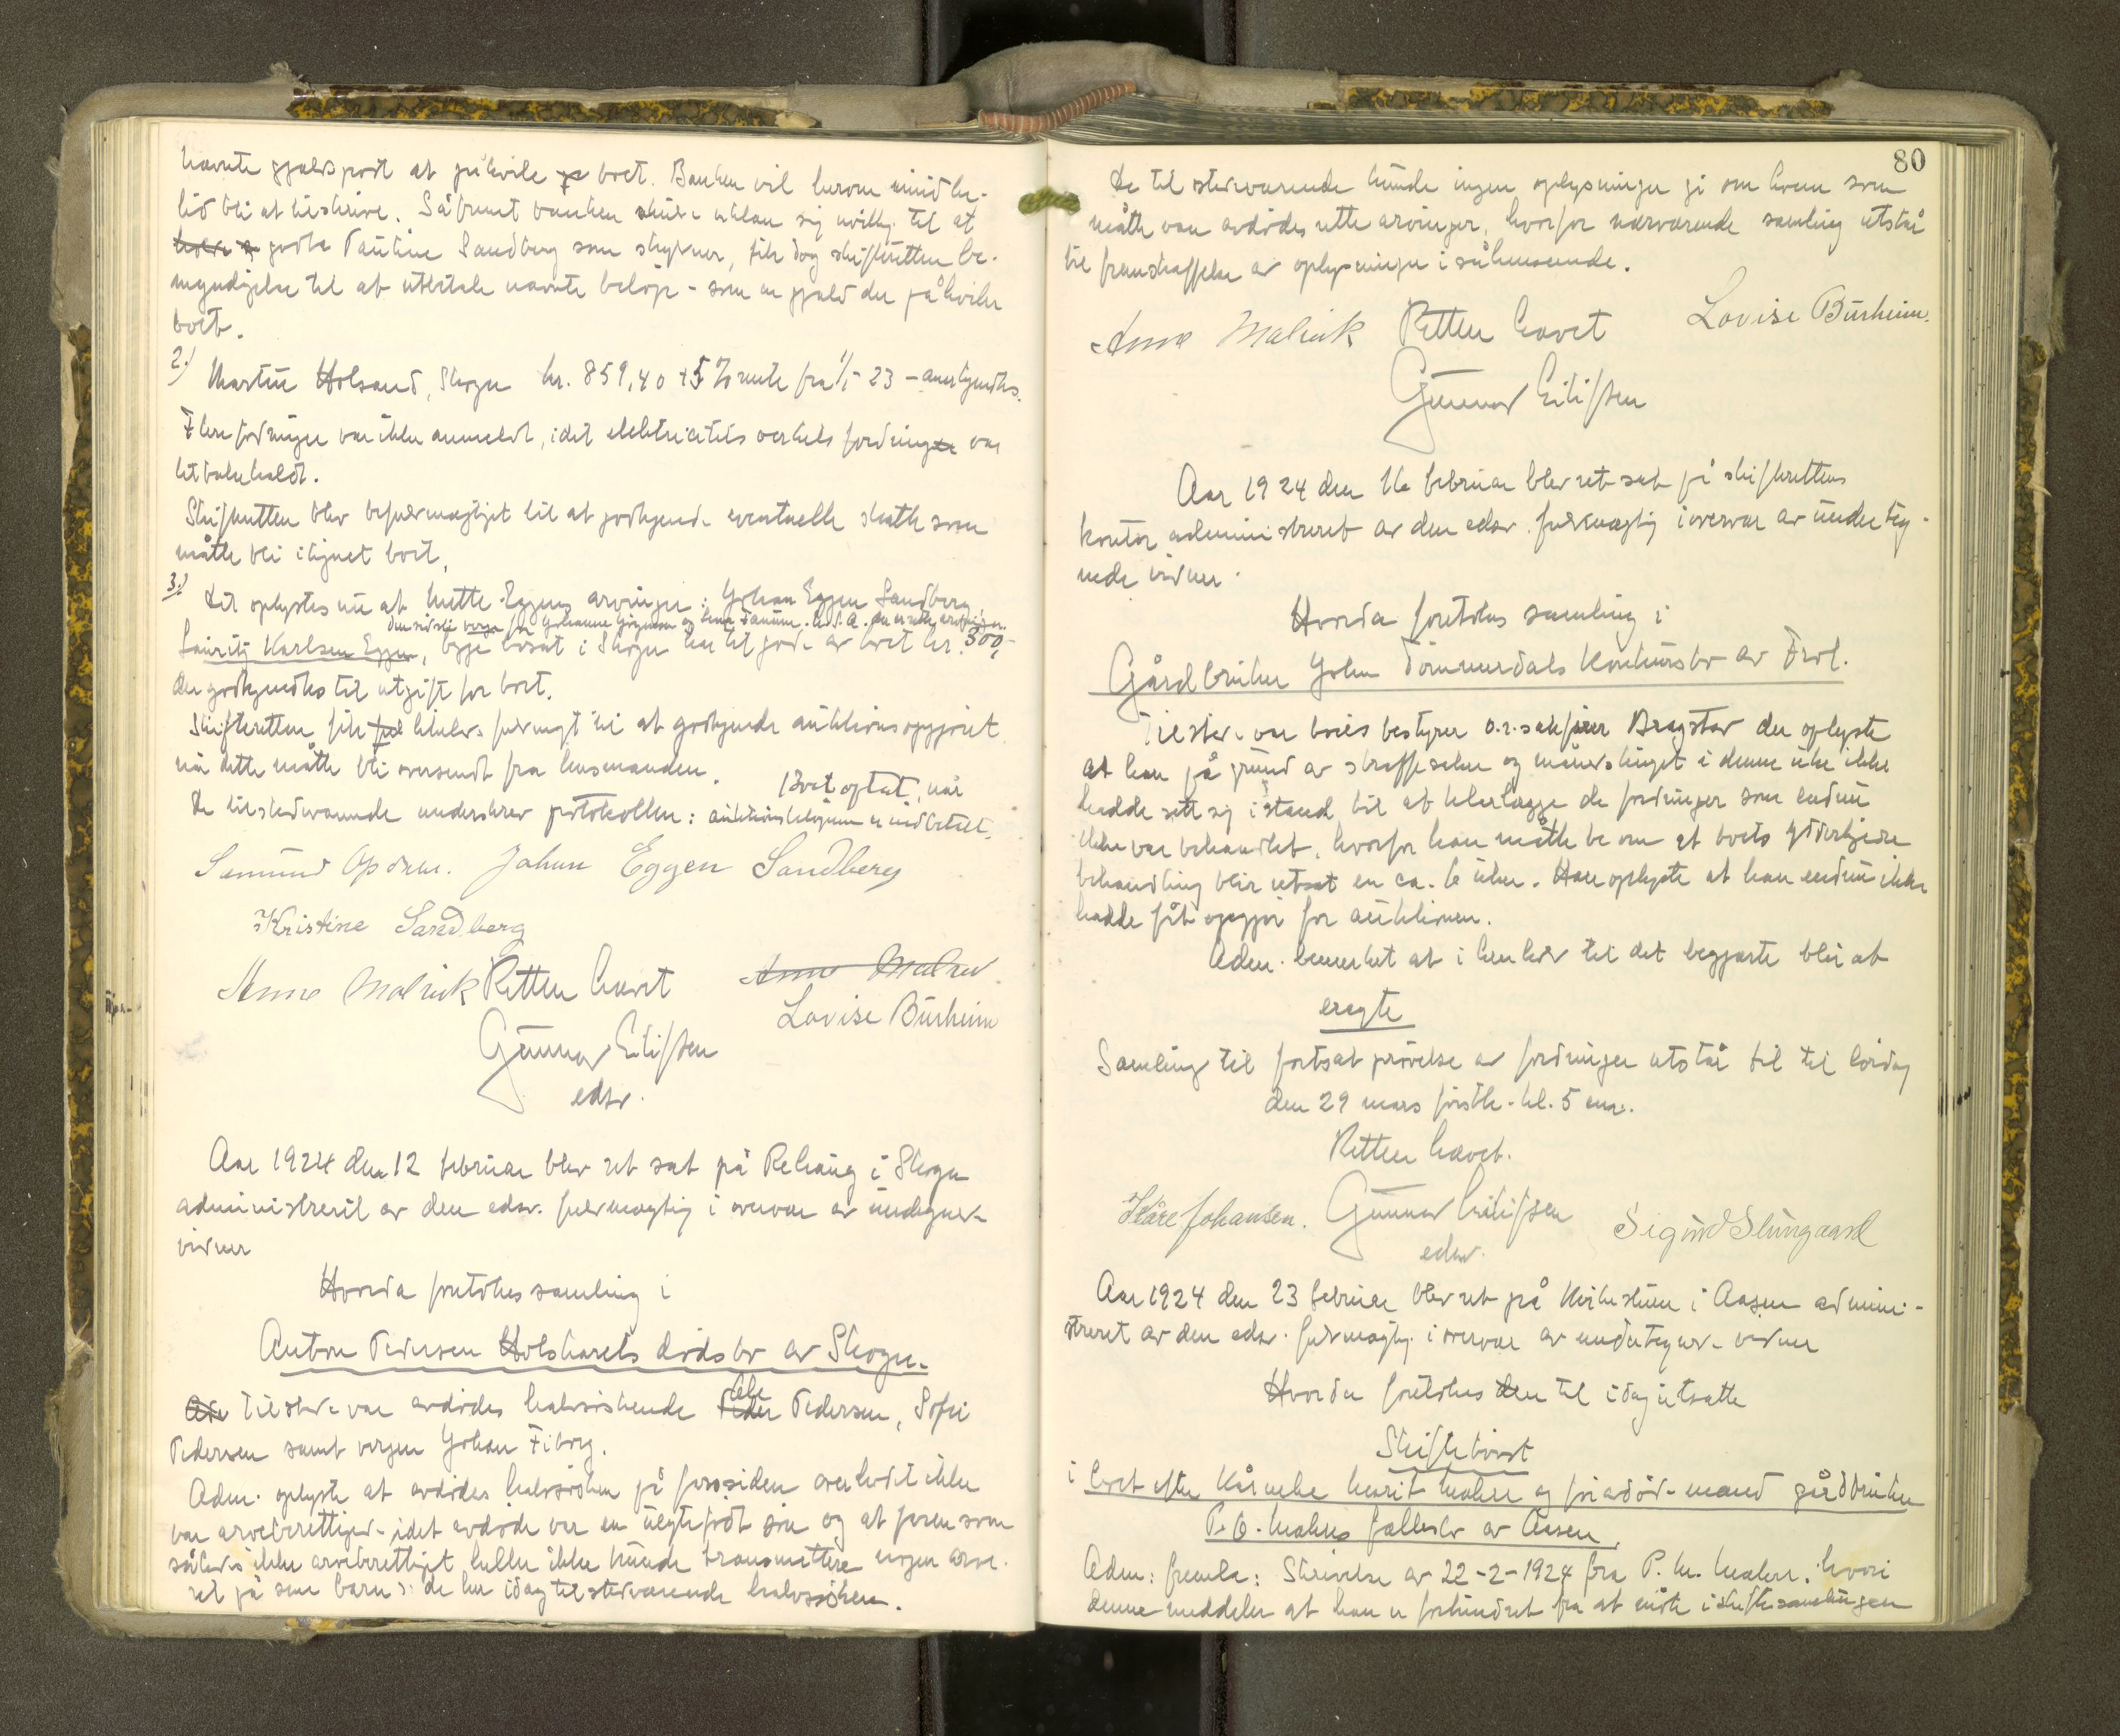 nævnte gjældspost at påhvile boet. Banken vil herom
bli at tilskrive. Såfremt banken skulde uttale sig villig til at
godta Pauline Sandberg som skyldner, fik dog skifteretten be-
myndigelse til at utbetale nævnte beløp - som en gjæld der påhviler
boet.
2.) Martin Holsand, Skogn kr. 859,40 + 5 % rente fra 1/1 - 23 - anerkjendtes.
Flere fordringer var ikke anmeldt, idet elektricitetsverkets fordring var
tilbakekaldt.
Skifteretten blev befuldmægtiget til at godkjende eventuelle skatter som
måtte bli ilignet boet.
3.) Det oplystes nu at Mette Eggens arvinger: Johan Eggen Sandberg,
Lauritz Karlsen Eggen, begge bosat i Skogn har tilgode av boet kr. 300,-
der godkjendtes til utgift for boet.
Skifteretten fik likeledes fuldmagt til at godkjende auktionsopgjøret
når dette måtte bli oversendt fra lensmanden.
Boet optat, når
De tilstedeværende underskrev protokollen: auktionsbeløpene er indbetalt.
Samund Opdem. Johan Eggen Sandberg
Kristine Sandberg
Anne Malvik Retten hævet
Lovise Burheim
Gunnar Eilifsen
edsv.
Aar 1924 den 12 februar blev ret sat på Rehaug i Skogn
administreret av den edsv. fuldmægtig i overvær av undertegnede
vidner
Hvorda foretokes samling i
Anton Pedersen Holsbarets dødsbo av Skogn.
Tilstede var avdødes halvsøskende Pedersen, Sofie
Pedersen samt vergen Johan Fiborg.
Adm. oplyste at avdødes halvsøsken på farssiden overhodet ikke
var arveberettiget - idet avdøde var en uegtefødt søn og at faren som
således ikke arveberettiget heller ikke kunde transmittere nogen arve-
ret på sine barn o: de her idag tilstedeværende halvsøsken.
80
De tilstedeværende kunde ingen oplysninger gi om hvem som
måtte være avdødes rette arvinger, hvorfor nærværende samling utstår
til fremskaffelse av oplysninger i såhenseende.
Anne Malvik Retten hævet Lovise Burheim.
Gunnar Eilifsen
Aar 1924 den 16 februar blev ret sat på skifterettens
kontor administreret av den edsv. fuldmægtig i overvær av underteg-
nede vidner.
Hvorda foretokes samling i
Gårdbruker John Tømmerdals konkursbo av Frol.
Tilstede var boets bestyrer o.r.sakfører Bragstad der oplyste
at han på grund av straffesaker og månedstinget i denne uke ikke
hadde sett sig istand til at klarlægge de fordringer som endnu
ikke var behandlet, hvorfor han måtte be om at boets yderligere
behandling blir utsat en ca. 6 uker. Han oplyste at han endnu ikke
hadde fåt opgjør for auktionen.
Adm. bemerket at i henhold til det begjærte blir at
eragte
Samling til fortsat prøvelse av fordringer utstår til til lørdag
den 29 mars førstk. kl. 5 em.
Retten hævet.
Kåre Johansen. Gunnar Eilifsen Sigurd Slungaard
edsv.
Aar 1924 den 23 februar blev ret på Kirkestuen i Aasen admini-
streret av den edsv. fuldmægtig i overvær av undertegnede vidner
Hvorda foretokes den til idag utsatte
Skiftetinget
i boet efter kårenke Marit og forutdøde mand gårdbruker
P. O. fællesbo av Aasen.
Adm: fremla: Skrivelse av 22-2-1924 fra P. M. hvori
denne meddeler at han er forhindret fra at møte i skiftesamlingen